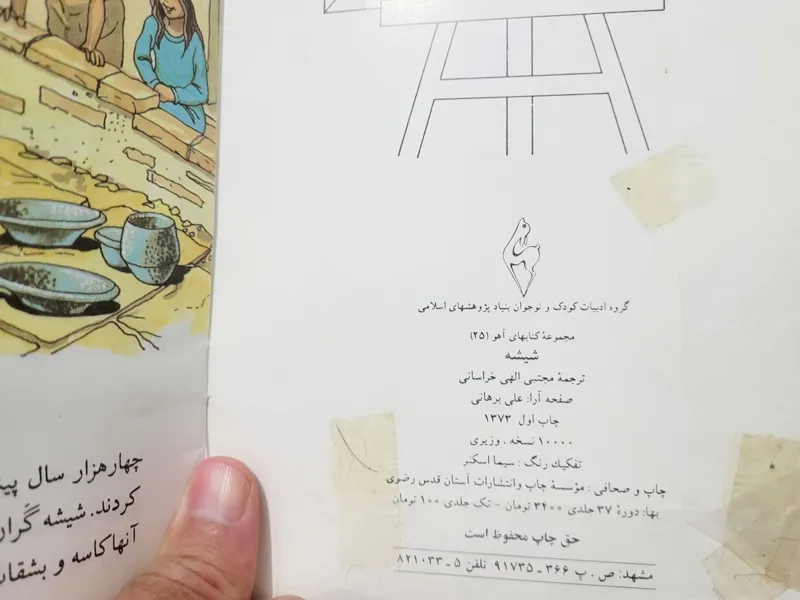 گروه ادبیات کودک و نوجوان بنیاد پژوهشهای اسلامی
مجموعهٔ کتابهای آهو (۲۵)
شیشه
ترجمهٔ مجتبی الهی خراسانی
صفحه آرا: علی برهانی
چاپ اول ۱۳۷۳
۱۰۰۰۰ نسخه . وزیری
تفکیک رنگ : سیما اسکنر
چاپ و صحافی : مؤسسهٔ چاپ وانتشارات آستان قدس رضوی
بها: دورهٔ ۳۷ جلدی ۳۲۰۰ تومان – تک جلدی ۱۰۰ تومان
حق چاپ محفوظ است
مشهد: ص . پ ۳۶۶ ـ ۹۱۷۳۵ تلفن ۵ ـ ۸۲۱۰۳۳
چهارهزار سال
کردند. شیشه گران
آنهاکاسه و بشقاب